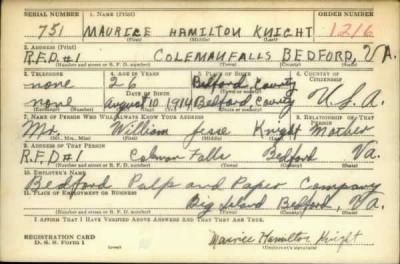 SERIAL NUMBER 1. NAME (Print) ORDER NUMBER
751 MAURICE HAMILTON KNIGHT 1216
(First) (Middle) (Last)
2. ADDRESS (Print)
R.F.D. #1 COLEMAN FALLS BEDFORD, VA.
(Number and street or R. F. D. number) (Town) (County) (State)
3. TELEPHONE 4. AGE IN YEARS 5. PLACE OF BIRTH 6. COUNTRY OF CITIZENSHIP
none 26 Bedford County
DATE OF BIRTH
none August 10 1914 Bedford, County U.S.A.
7. NAME OF PERSON WHO WILL ALWAYS KNOW YOUR ADDRESS 8. RELATIONSHIP OF THAT PERSON
Mr. William Jesse Knight Mother
(Mr., Mrs., Miss) (First) (Middle) (Last)
9. ADDRESS OF THAT PERSON
R.F.D #1 Colman Falls Bedford Va.
(Number and street or R. F. D. number) (Town) (County) (State)
10. EMPLOYER'S NAME
Bedford Pulp and Paper Company
11. PLACE OF EMPLOYMENT OR BUSINESS
Big Island Bedford, Va.
(Number and street or R. F. D. number) (Town) (County) (State)
I AFFIRM THAT I HAVE VERIFIED ABOVE ANSWERS AND THAT THEY ARE TRUE.
REGISTRATION CARD
D. S. S. Form 1
Maurice Hamilton Knight